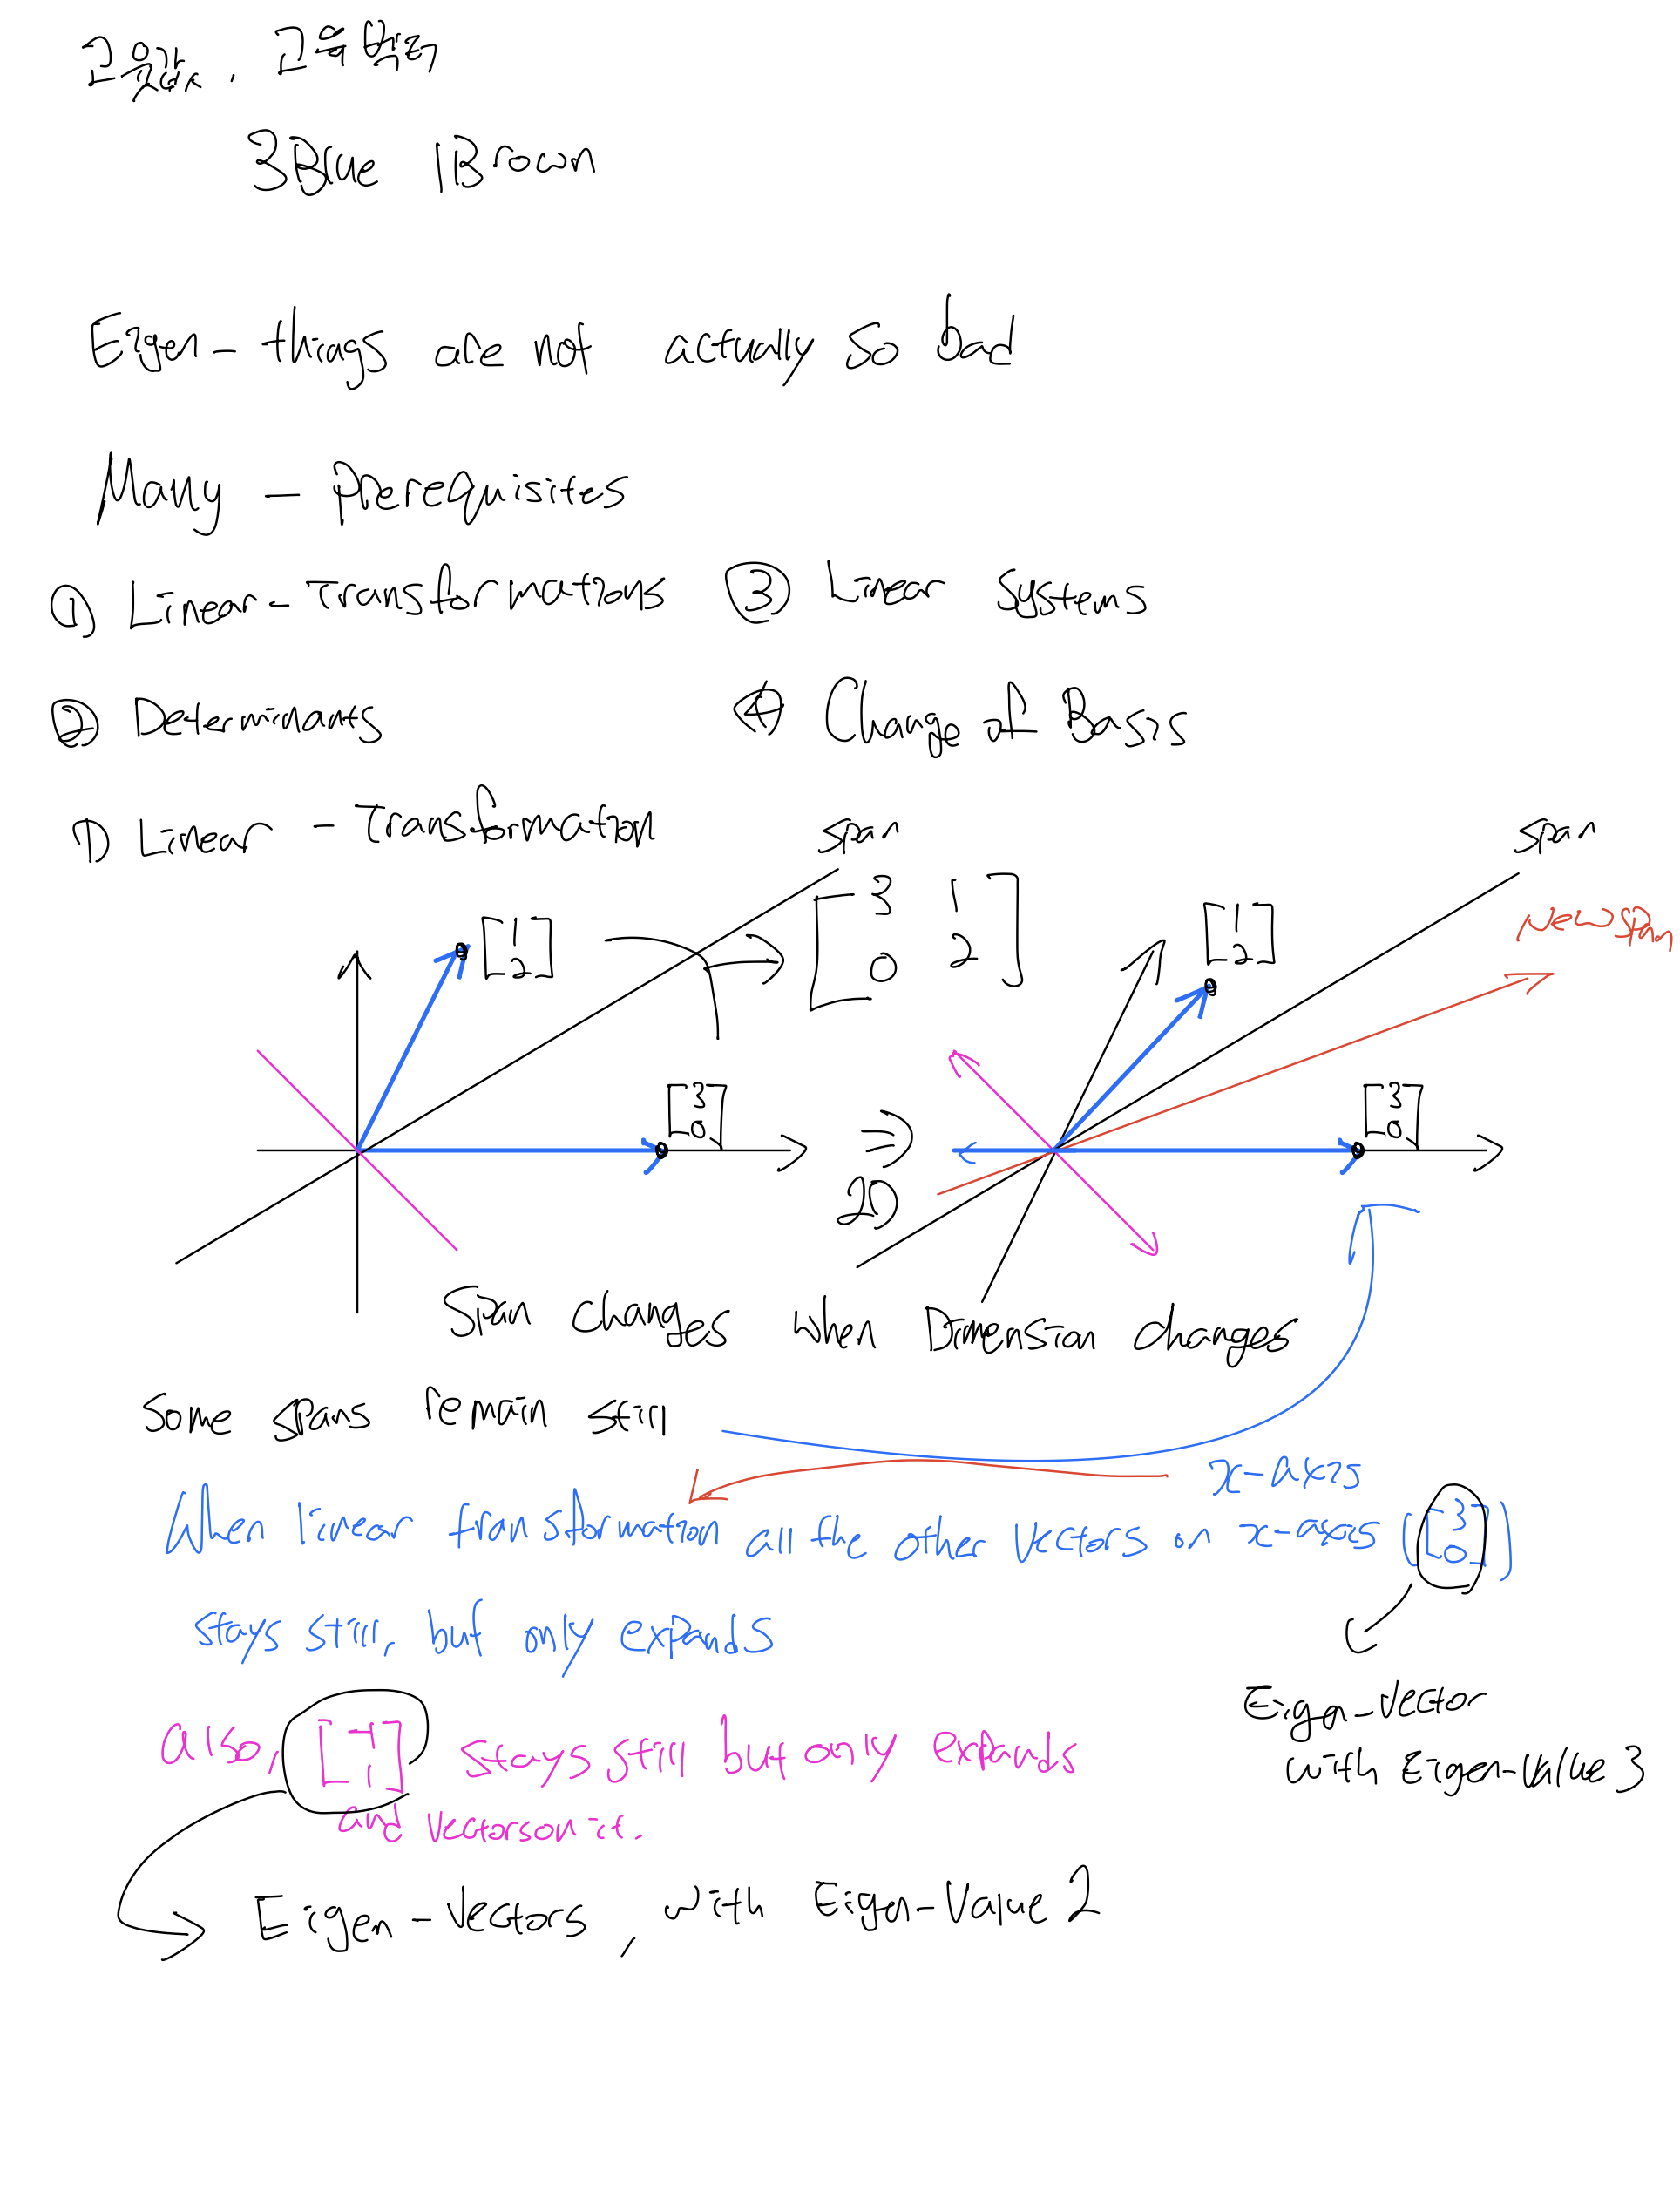 고윳값, 고유벡터
3Blue 1Brown
Eigen-things are not actually so bad
Many - prerequisites
① Linear-Transformations ③ Linear Systems
② Determinants ④ Change of Basis
1) Linear - Transformation
span
span
New span
[1 2]
[3 1
0 2]
[1 2]
[3 0]
⇒
2D
[3 0]
Span changes when Dimension changes
Some spans remain still
x-axis
When linear transformation all the other vectors on x-axis ([3 0])
stays still, but only expands
Eigen-vector
with Eigen-value 3
also, [-1 1] stays still but only expands
and vectors on it.
Eigen-vectors, with Eigen-value 2